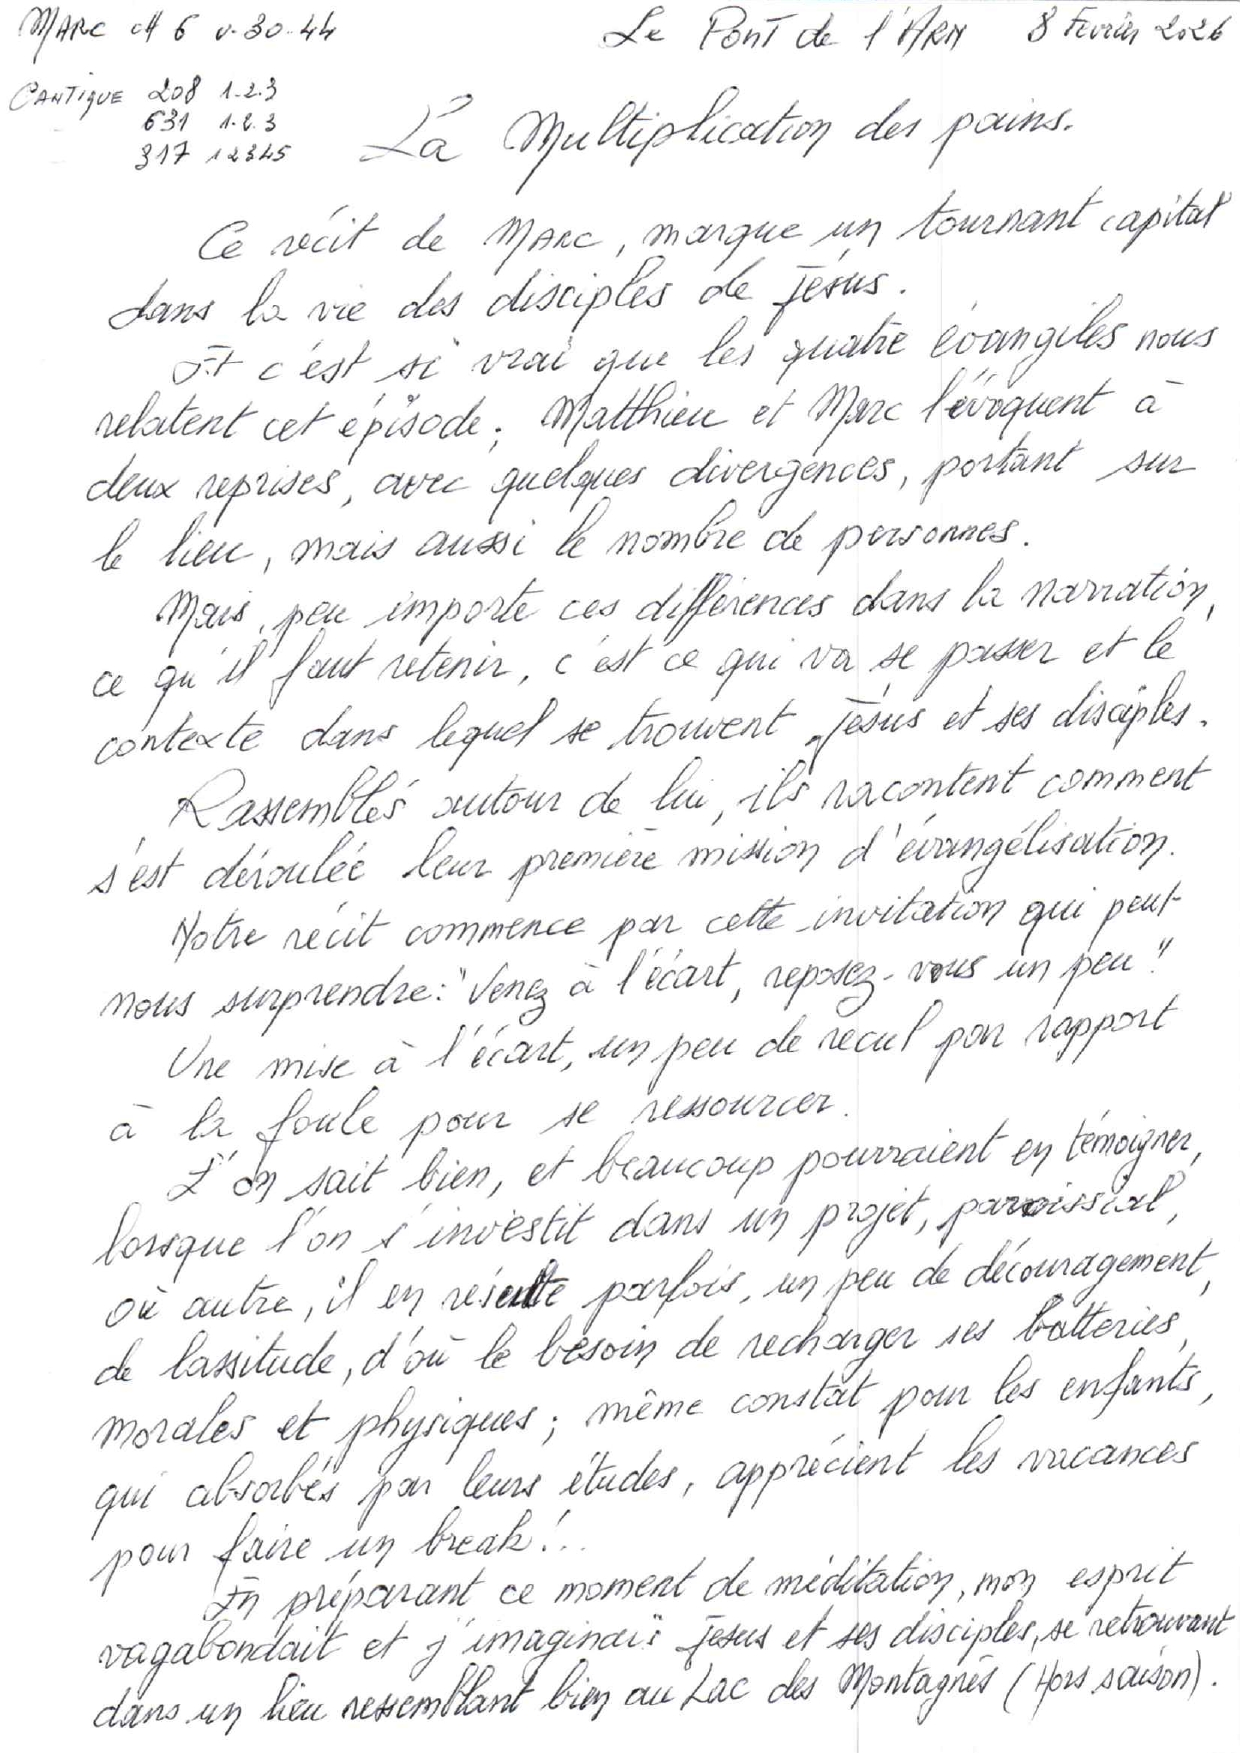 MARC ch 6 v. 30-44
Le Pont de l'Arn 8 Février 2026
CANTIQUE 208 1.2.3
631 1.2.3
317 12345
La Multiplication des pains.
Ce récit de MARC, marque un tournant capital
dans la vie des disciples de Jésus.
Et c'est si vrai que les quatre évangiles nous
relatent cet épisode ; Matthieu et Marc l'évoquent à
deux reprises, avec quelques divergences, portant sur
le lieu, mais aussi le nombre de personnes.
Mais, peu importe ces différences dans la narration,
ce qu'il faut retenir, c'est ce qui va se passer et le
contexte dans lequel se trouvent Jésus et ses disciples.
Rassemblés autour de lui, ils racontent comment
s'est déroulée leur première mission d'évangélisation.
Notre récit commence par cette invitation qui peut
nous surprendre : "Venez à l'écart, reposez-vous un peu".
Une mise à l'écart, un peu de recul par rapport
à la foule pour se ressourcer.
L'on sait bien, et beaucoup pourraient en témoigner,
lorsque l'on s'investit dans un projet, paroissial,
où autre, il en résulte parfois, un peu de découragement,
de lassitude, d'où le besoin de recharger ses batteries,
morales et physiques ; même constat pour les enfants,
qui absorbés par leurs études, apprécient les vacances
pour faire un break !..
En préparant ce moment de méditation, mon esprit
vagabondait et j'imaginais Jesus et ses disciples, se retrouvant
dans un lieu ressemblant bien au Lac des Montagnès (Hors saison).